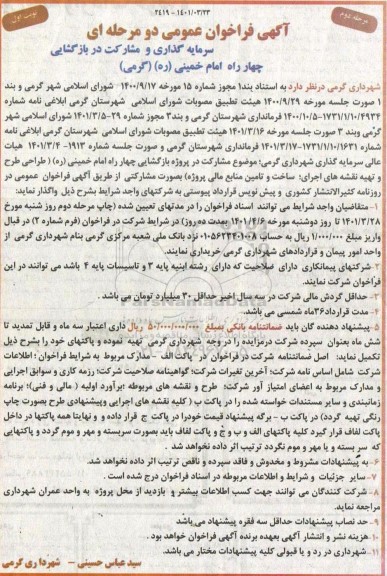 مرحله دوم
۲۴۱۹ - ۱۴۰۱/۰۳/۲۳
نوبت اول
آگهی فراخوان عمومی دو مرحله ای
سرمایه گذاری و مشارکت در بازگشایی
چهار راه امام خمینی (ره) (گرمی)
شهرداری گرمی درنظر دارد به استناد بند۱ مجوز شماره ۱۵ مورخه ۱۴۰۰/۹/۱۷ شورای اسلامی شهر گرمی و بند
۱ صورت جلسه مورخه ۱۴۰۰/۹/۲۹ هیئت تطبیق مصوبات شورای اسلامی شهرستان گرمی ابلاغی نامه شماره
۱۷۳۱/۱/۱۰/۴۹۳۴-۱۴۰۰/۱۰/۵ فرمانداری شهرستان گرمی و بند۲ مجوز شماره ۲۹-۱۴۰۱/۳/۵ شورای اسلامی شهر
گرمی وبند ۳ صورت جلسه مورخه ۱۴۰۱/۳/۱۶ هیئت تطبیق مصوبات شورای اسلامی شهرستان گرمی ابلاغی نامه
شماره ۱۷۳۱/۱/۱۰/۱۶۳۱-۱۴۰۱/۳/۱۷ فرمانداری شهرستان گرمی و صورت جلسه شماره ۱۹۱۳- ۱۴۰۱/۳/۴ هیات
عالی سرمایه گذاری شهرداری گرمی؛ موضوع مشارکت در پروژه بازگشایی چهارراه امام خمینی (ره) ( طراحی طرح
و تهیه نقشه های اجرای؛ ساخت و تامین منابع مالی پروژه) بصورت مشارکتی از طریق آگهی فراخوان عمومی در
روزنامه کثیرالانتشار کشوری و پیش نویس قرارداد پیوستی به شرکتهای واجد شرایط بشرح ذیل واگذار نماید:
۱- متقاضیان واجد شرایط می توانند اسناد فراخوان را در مدتهای تعیین شده (چاپ مرحله دوم روز شنبه مورخ
۱۴۰۱/۳/۲۸ تا روز دوشنبه مورخه ۱۴۰۱/۴/۶ بمدت ده روز) در شرایط شرکت در فراخوان (فرم شماره ۲) در قبال
واریز مبلغ ۱/۰۰۰/۰۰۰ ریال به حساب ۰۱۰۵۶۲۳۴۰۱۰۰۸ نزد بانک ملی شعبه مرکزی گرمی بنام شهرداری گرمی از
واحد امور پیمان و قراردادهای شهرداری گرمی خریداری نمایند.
۲-شرکتهای پیمانکاری دارای صلاحیت که دارای رشته ابنیه پایه ۳ و تاسیسات پایه ۴ باشد می توانند در این
فراخوان شرکت نمایند.
۳- حداقل گردش مالی شرکت در سه سال اخیر حداقل ۳۰ میلیارد تومان می باشد.
۴- مدت قرارداد۳۶ماه شمسی می باشد.
۵- پیشنهاد دهنده گان باید ضمانتنامه بانکی بمبلغ ۵۰/۰۰۰/۰۰۰/۰۰۰ ریال داری اعتبار سه ماه و قابل تمدید تا
شش ماه بعنوان سپرده شرکت درمزایده را در وجه شهرداری گرمی تهیه نموده و پاکتهای خود را بشرح ذیل
تکمیل نماید: اصل ضمانتنامه شرکت در فراخوان در پاکت الف – مدارک مربوط به شرایط فراخوان ؛ اطلاعات
شرکت شامل اساس نامه شرکت؛ آخرین تغییرات شرکت؛ گواهینامه صلاحیت شرکت؛ رزمه کاری و سوابق اجرایی
و مدارک مربوط به اعضای امتیاز آور شرکت؛ طرح و نقشه های مربوطه ؛برآورد اولیه ( مالی و فنی)؛ برنامه
زمانبندی و سایر مستندات خواسته شده را در پاکت ب ( کلیه نقشه های اجرایی وپیشنهادی طرح بصورت چاپ
رنگی تهیه گردد) در پاکت ب - برگه پیشنهاد قیمت خودرا در پاکت ج قرار داده و و نهایتا همه پاکتها در داخل
پاکت لفاف قرار گیرد کلیه پاکتهای الف و ب و ج و پاکت لفاف باید بصورت سربسته و مهر و موم گردد و پاکتهایی
که سر بسته و یا مهر و موم نگردد ترتیب اثر داده نخواهد شد.
۶- به پیشنهادات مشروط و مخدوش و فاقد سپرده و ناقص ترتیب اثر داده نخواهد شد.
۷- سایر جزئیات و شرایط و اطلاعات مربوطه در اسناد فراخوان درج شده است.
۸- شرکت کنندگان می توانند جهت کسب اطلاعات بیشتر و بازدید از محل پروژه به واحد عمران شهرداری
مراجعه نمایند.
۹- حد نصاب پیشنهادات حداقل سه فقره پیشنهاد می باشد
۱۰- هزینه نشر و انتشار آگهی بعهده برنده آگهی فراخوان خواهد بود.
۱۱- شهرداری در رد و یا قبولی کلیه پیشنهادات مختار می باشد.
سید عباس حسینی – شهرداری گرمی